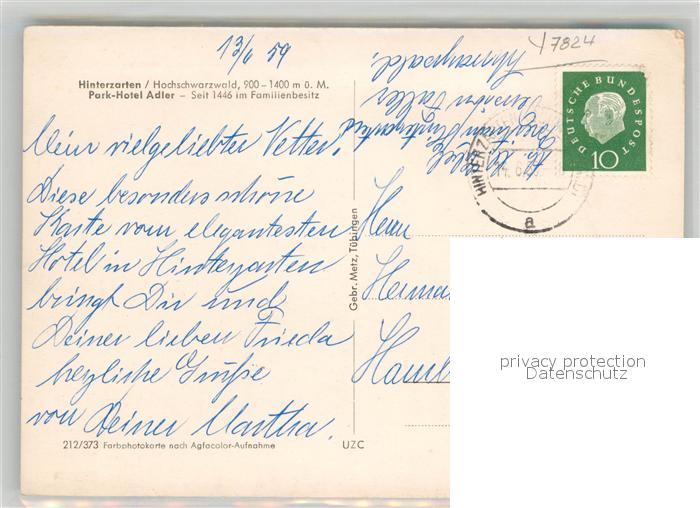 13/6 59
Y7824
Hinterzarten / Hochschwarzwald, 900–1400 m ü. M.
Park-Hotel Adler – Seit 1446 im Familienbesitz
Mein vielgeliebter Vetter.
Diese besonders schöne
Karte vom elegantesten
Hotel in Hinterzarten
bringt Dir und
Deiner lieben Frieda
herzliche Grüße
von Deiner Martha.
212/373 Farbphotokarte nach Agfacolor-Aufnahme
UZC
Gebr. Metz, Tübingen
Hinterzarten
Schwarzwald.
DEUTSCHE BUNDESPOST
10
HINTERZ
a
Herrn
privacy protection
Datenschutz